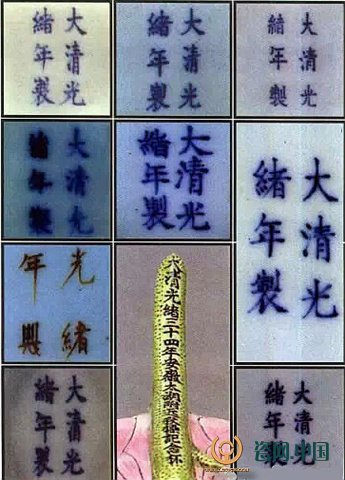 大清光
緒年製
大清光
緒年製
大清光
緒年製
大清光
緒年製
大清光
緒年製
大清光
緒年製
光緒
年製
大清光緒三十四年安徽太湖附近秋操紀念杯
大清光
緒年製
大清光
緒年製
瓷网中国